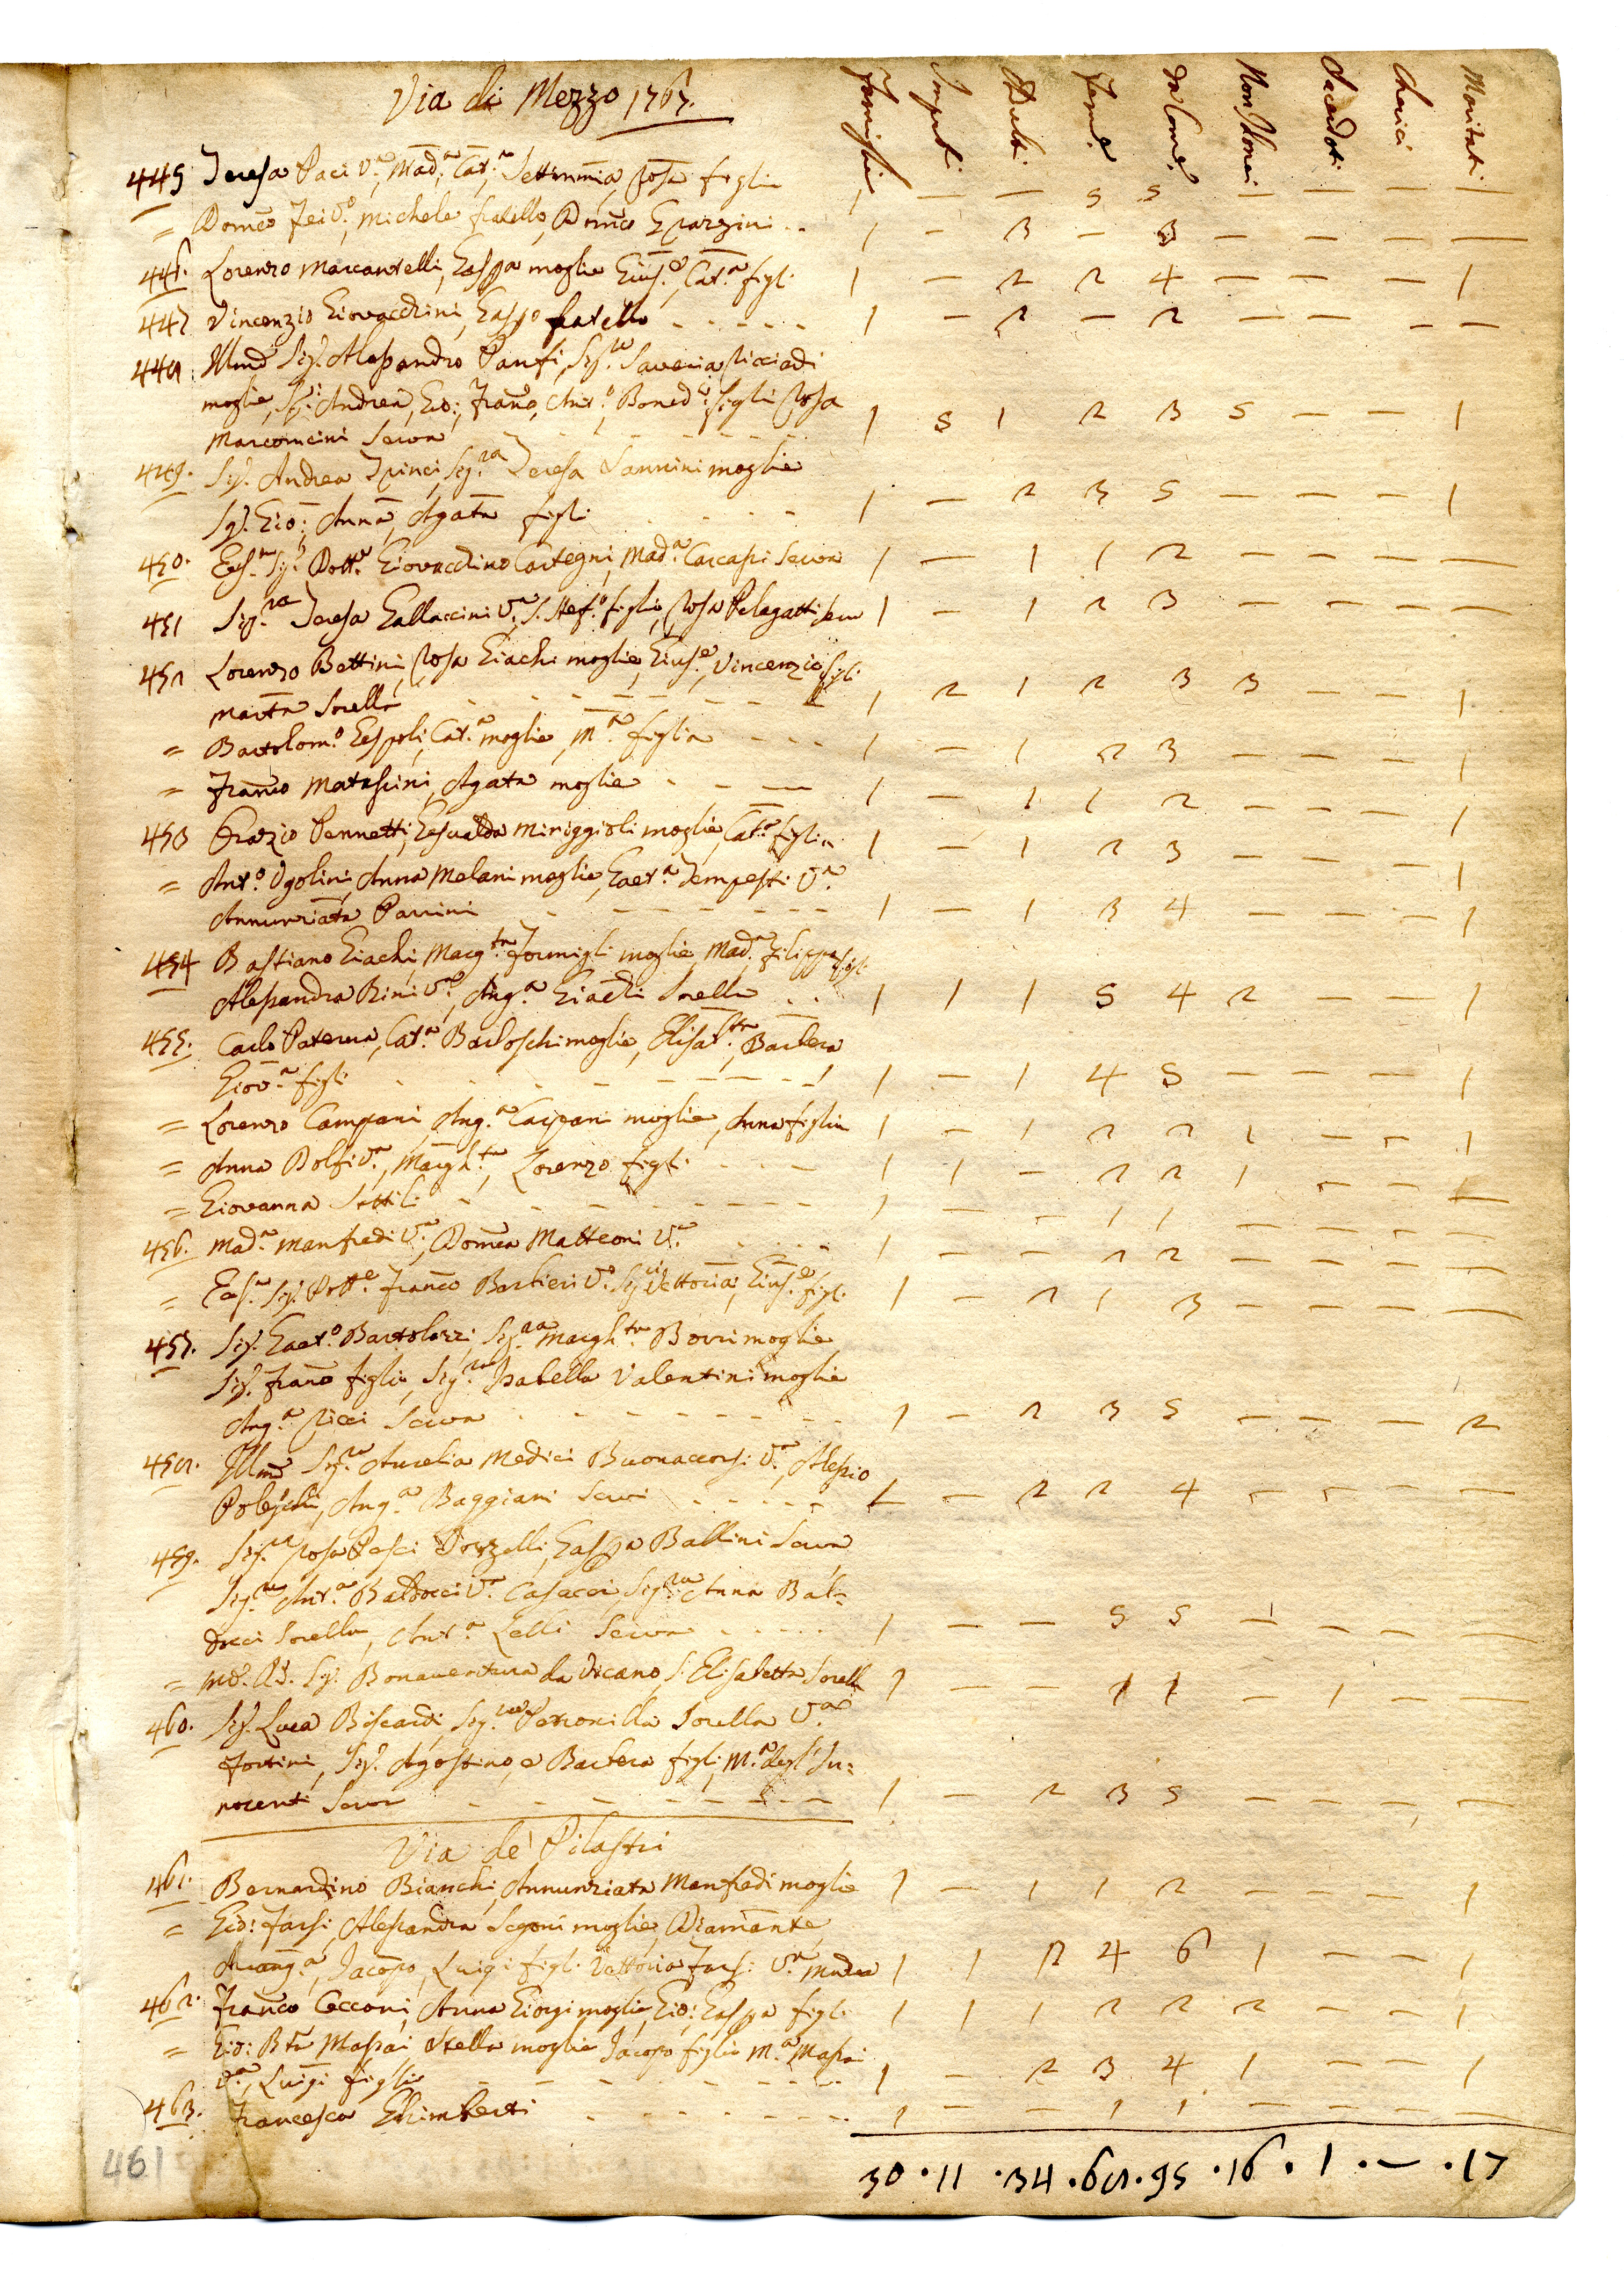 Via di Mezzo 1767.
Famiglie Impub: Adulti Fem:e Da Com:e Non Idonei Sacerdoti Cherici Maritati
445 Teresa Paci V:a, Mad:a, Cat:a, Settimmia, Rosa figlie 1 — — 5 5 — — — —
= Dom:co Fei V:o, Michele fratello, Dom:co Grazzini .. 1 - 3 - 3 — — — —
446. Lorenzo Marcantelli, Gasp:a moglie Gius:e, Cat:a figli 1 — 2 2 4 — — — 1
447 Vincenzio Giovacchini, Gasp:o fratello - - - - - 1 - 2 - 2 — — — —
448 Illmo Sig:r Alessandro Panfi, Sig:ra Saveria Ricciardi
moglie, Sig:i Andrea, Gio:, Fran:co, Ant:o, Bened:o figli Rosa
Marconcini Serva 1 5 1 2 3 5 — — 1
449. Sig:r Andrea Princi, Sig:ra Teresa Vannini moglie
Sig:r Gio: Anna, Agata figli 1 — 2 3 5 — — — 1
450. Ecc:mo Sig:r Dott:e Giovacchino Cartegni, Mad:a Carcasi Serva 1 — 1 1 2 — — — —
451 Sig:ra Teresa Gallaccini V:a, S. Stef:o figlio, Rosa Pelagatti Serv 1 - 1 2 3 — — — —
452 Lorenzo Bettini, Rosa Giachi moglie, Gius:e, Vincenzio figli
Marta Sorella 1 2 1 2 3 3 — — 1
= Bartolom:o Gespoli, Cat:a moglie, M:a figlia 1 — 1 2 3 — — — 1
= Fran:co Matassini, Agata moglie - - — 1 — 1 1 2 — — — 1
453 Orazio Pennetti, Gesualda Miriggioli moglie, Cat:a figlia 1 — 1 2 3 — — — 1
= Ant:o Ugolini, Anna Melani moglie, Gaet:a Tempesti V:a
Annunziata Parrini 1 — 1 3 4 — — — 1
454 Bastiano Giachi, Marg:ta Formigli moglie, Mad:a Filippo figli
Alessandra Bini V:a, Ang:a Giachi Sorella .. 1 1 1 5 4 2 — — 1
455. Carlo Paterna, Cat:a Barloschi moglie, Elisab:ta, Barbera
Giov:a figli 1 — 1 4 5 — — — 1
= Lorenzo Campani, Ang:a Carpani moglie, Anna figlia 1 - 1 2 2 1 — - 1
= Anna Dolfi V:a, Margh:ta, Lorenzo figli 1 1 - 2 2 1 — — —
= Giovanna Sottili 1 - - 1 1 — — — —
456. Mad:a Manfredi V:a, Dom:ca Matteoni V:a 1 — — 2 2 — — — —
= Ecc:mo Sig:r Dott:e Fran:co Barbieri V:o Sig:ri Vettoria, Gius:e figli 1 — 2 1 3 — — — —
457. Sig:r Gaet:o Bartolozzi, Sig:ra Margh:ta Borri moglie
Sig:r Fran:co figlio, Sig:ra Isabella Valentini moglie
Ang:a Ricci Serva 1 — 2 3 5 — — — 2
458. Illma Sig:ra Aurelia Medici Buonaccorsi V:a, Alessio
Ang:a Baggiani Servi 1 — 2 2 4 — — — —
459. Sig:ra Rosa Pasci Gasp:a Ballini Serva
Sig:ra Ant:a Baldocci V:a Casacci, Sig:ra Anna Bal=
docci Sorella, Ant:a Lelli Serva 1 — — 5 5 — — — —
= Bonaventura da Vicano, S. Elisabetta Sorella 1 — — 1 1 — 1 — —
460. Sig:r Luca Biscardi, Sig:ra Petronilla Sorella V:a
Fortini, Sig:r Agostino, e Barbera figli, M:a degl' In=
nocenti Serva 1 — 2 3 5 — — — —
Via de' Pilastri
461. Bernardino Bianchi, Annunziata Manfredi moglie 1 — 1 1 2 — — — 1
= Gio: Farsi, Alessandra Segoni moglie, Diamante,
Arcang:a, Jacopo, Luigi figli Vettoria Farsi V:a Madre 1 1 2 4 6 1 — — 1
462. Fran:co Cecconi, Anna Giorgi moglie, Gio: Gasp:a figli 1 1 1 2 2 2 — — 1
= Gio: Bta Massai Stella moglie Jacopo figlio M:a Massai
V:a, Luigi figlio 1 — 2 3 4 1 — — 1
463. Francesca Ghimberti 1 — — 1 1 — — — —
30 . 11 . 34 . 68 . 95 . 16 . 1 . — . 17
461